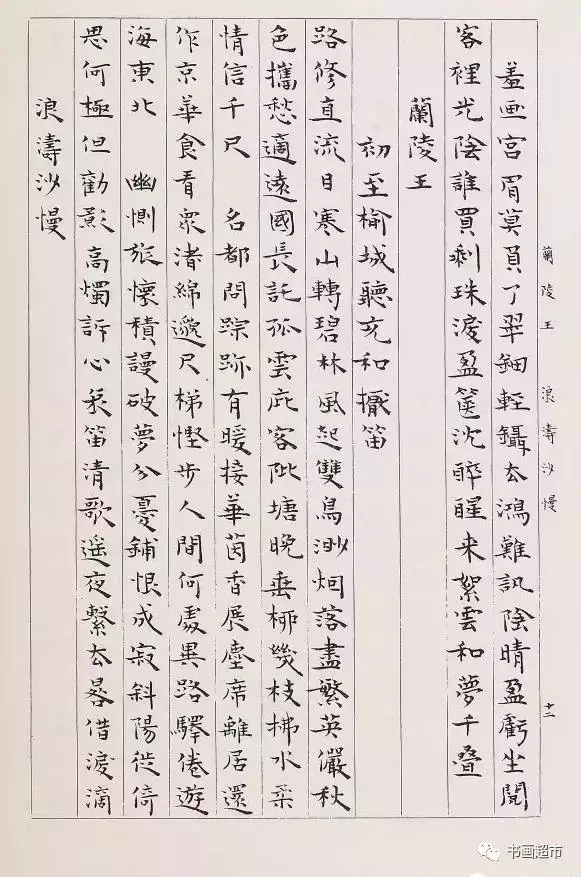 蘭陵王　浪濤沙慢　十二
羞画宫眉莫負了翠鈿輕鑷去鴻難訊陰晴盈虧坐閱
客裡光陰誰買剩珠淚盈篋沈醉醒来絮雲和夢千疊
蘭陵王
初至榆城聽充和擫笛
路修直流日寒山轉碧林風起雙鳥渺烟落盡繁英儼秋
色攜愁適遠國長託孤雲庇客阰塘晚垂柳幾枝拂水柔
情信千尺　名都問踪跡有暖接華茵香展塵席離居還
作京華食看衆渚綿邈尺梯慳步人間何處異路驛倦遊
海東北　幽惻旅懷積謾破夢分憂鋪恨成寂斜陽徙倚
思何極但勸影高燭訴心哀笛清歌遥夜繫去晷借淚滴
浪濤沙慢
书画超市